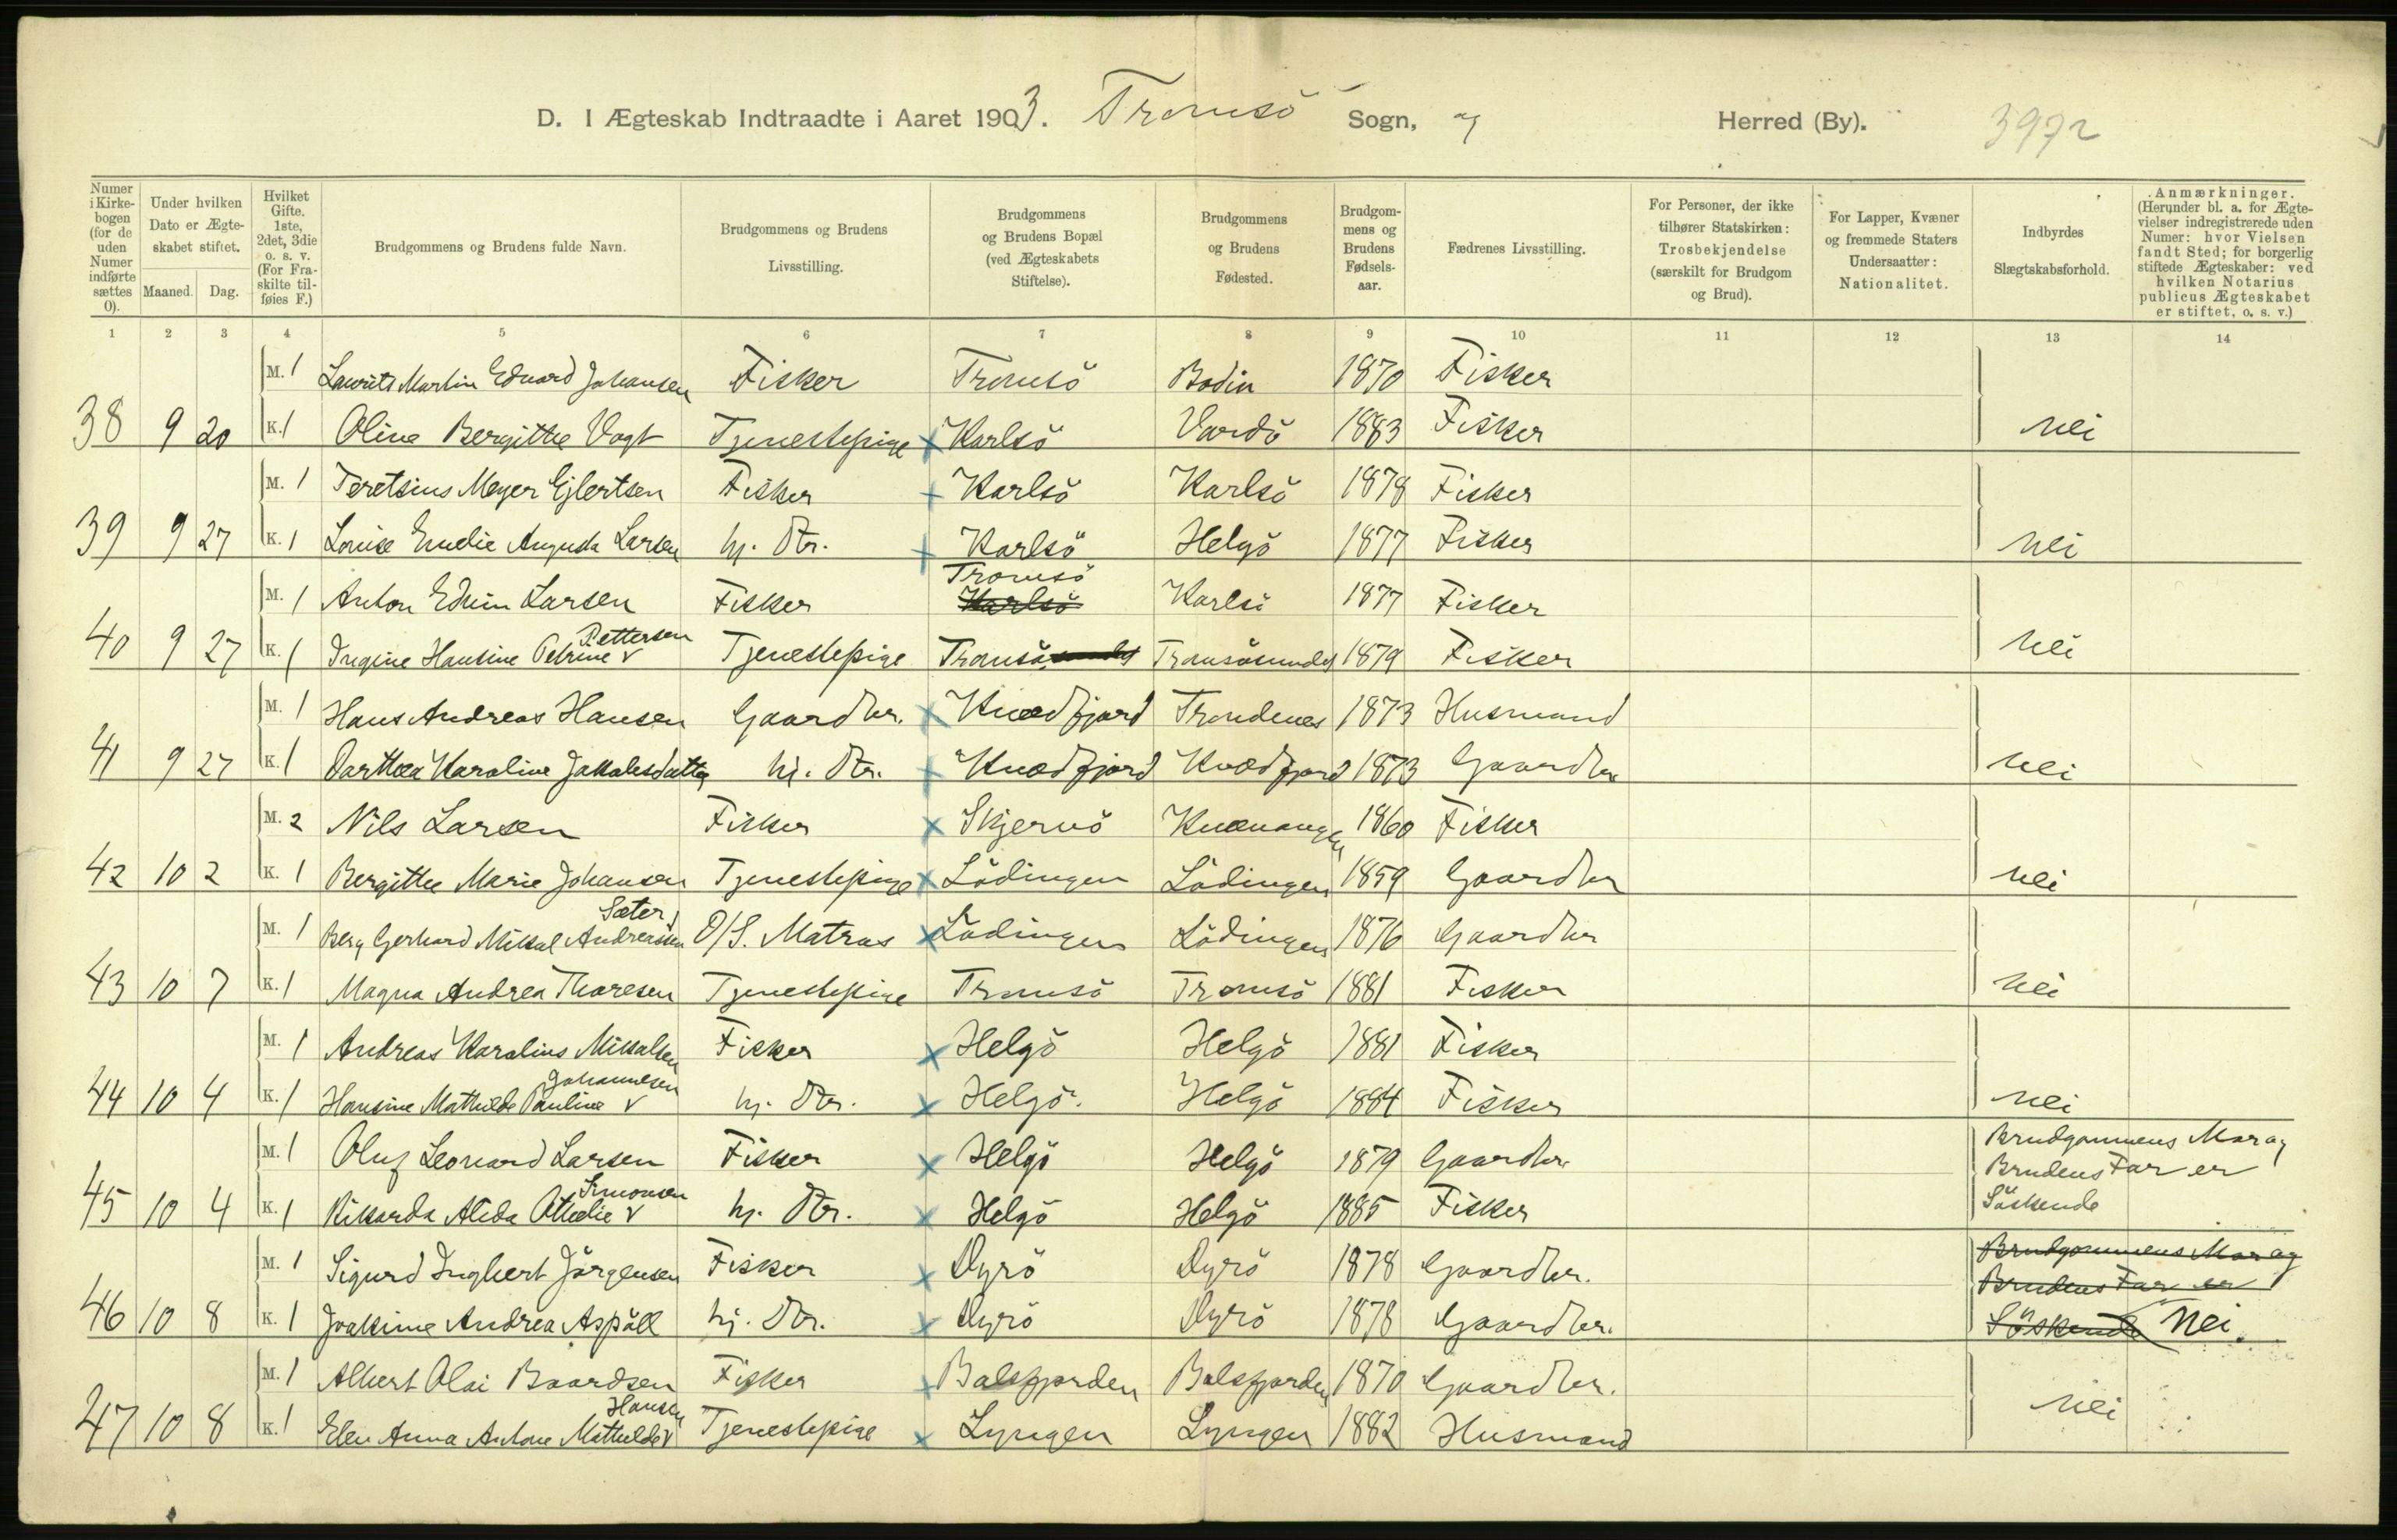 D. I Ægteskab Indtraadte i Aaret 1903. Tromsö Sogn, og Herred (By). 3972
Numer i Kirkebogen (for de uden Numer indførte sættes 0).
Under hvilken Dato er Ægteskabet stiftet.
Maaned. Dag.
Hvilket Gifte. 1ste, 2det, 3die o. s. v. (For Fraskilte tilføies F.)
Brudgommens og Brudens fulde Navn.
Brudgommens og Brudens Livsstilling.
Brudgommens og Brudens Bopæl (ved Ægteskabets Stiftelse).
Brudgommens og Brudens Fødested.
Brudgommens og Brudens Fødselsaar.
Fædrenes Livsstilling.
For Personer, der ikke tilhører Statskirken: Trosbekjendelse (særskilt for Brudgom og Brud).
For Lapper, Kvæner og fremmede Staters Undersaatter: Nationalitet.
Indbyrdes Slægtskabsforhold.
Anmærkninger. (Herunder bl. a. for Ægtevielser indregistrerede uden Numer: hvor Vielsen fandt Sted; for borgerlig stiftede Ægteskaber: ved hvilken Notarius publicus Ægteskabet er stiftet, o. s. v.)
1 2 3 4 5 6 7 8 9 10 11 12 13 14
M. 1 Laurits Martin Edvard Johansen Fisker Tromsö Bodin 1870 Fisker
38 9 20 K. 1 Oline Bergitthe Vogt Tjenestepige x Karlsö Vardö 1883 Fisker Nei
M. 1 Teretsius Meyer Ejlertsen Fisker x Karlsö Karlsö 1878 Fisker
39 9 27 K. 1 Louise Emelie Augusta Larsen hj. Dtr. x Karlsö Helgö 1877 Fisker Nei
Tromsö
M. 1 Anton Edvin Larsen Fisker Karlsö Karlsö 1877 Fisker
Pettersen
40 9 27 K. 1 Ingine Hansine Petrine v Tjenestepige Tromsösundet Tromsösundet 1879 Fisker Nei
M. 1 Hans Andreas Hansen Gaardbr. x Kvædfjord Trondenes 1873 Husmand
41 9 27 K. 1 Darthea Karoline Jakobsdatter hj. Dtr. x Kvædfjord Kvædfjord 1873 Gaardbr Nei
M. 2 Nils Larsen Fisker x Skjervö Kvænangen 1860 Fisker
42 10 2 K. 1 Bergitthe Marie Johansen Tjenestepige x Lödingen Lödingen 1859 Gaardbr Nei
Sæter
M. 1 Berg Gerhard Mikal Andreassen D/S. Matros x Lödingen Lödingen 1876 Gaardbr
43 10 7 K. 1 Magna Andrea Thoresen Tjenestepige Tromsö Tromsö 1881 Fisker Nei
M. 1 Andreas Karolius Mikalsen Fisker x Helgö Helgö 1881 Fisker
Johannesen
44 10 4 K. 1 Hansine Mathilde Pauline v hj. Dtr. x Helgö. Helgö 1884 Fisker Nei
M. 1 Oluf Leonard Larsen Fisker x Helgö Helgö 1879 Gaardbr. Brudgommens Mor og
Brudens Far er
Simonsen
45 10 4 K. 1 Rikarda Alida Othelie v hj. Dtr. x Helgö Helgö 1885 Fisker Söskende
M. 1 Sigurd Ingbert Jörgensen Fisker x Dyrö Dyrö 1878 Gaardbr. Brudgommens Mor og
Brudens Far er
46 10 8 K. 1 Joakime Andrea Aspöll hj. Dtr. x Dyrö Dyrö 1878 Gaardbr. Söskende Nei.
M. 1 Albert Olai Baardsen Fisker x Balsfjorden Balsfjorden 1870 Gaardbr.
Hansen
47 10 8 K. 1 Elen Anna Antone Mathilde v Tjenestepige x Lyngen Lyngen 1882 Husmand Nei